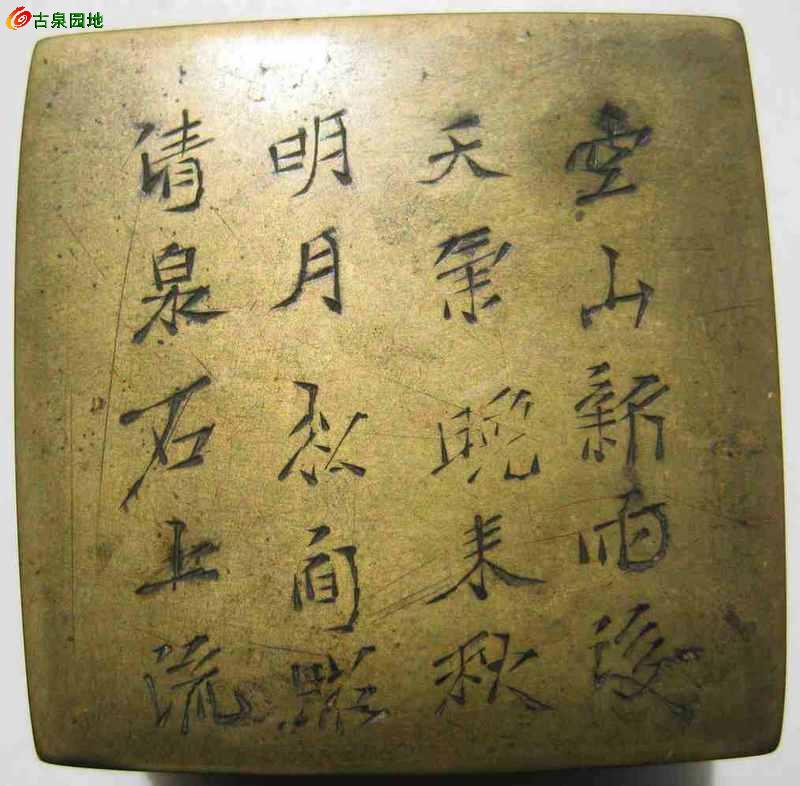 古泉园地
空山新雨後
天氣晚来秋
明月松間照
清泉石上流